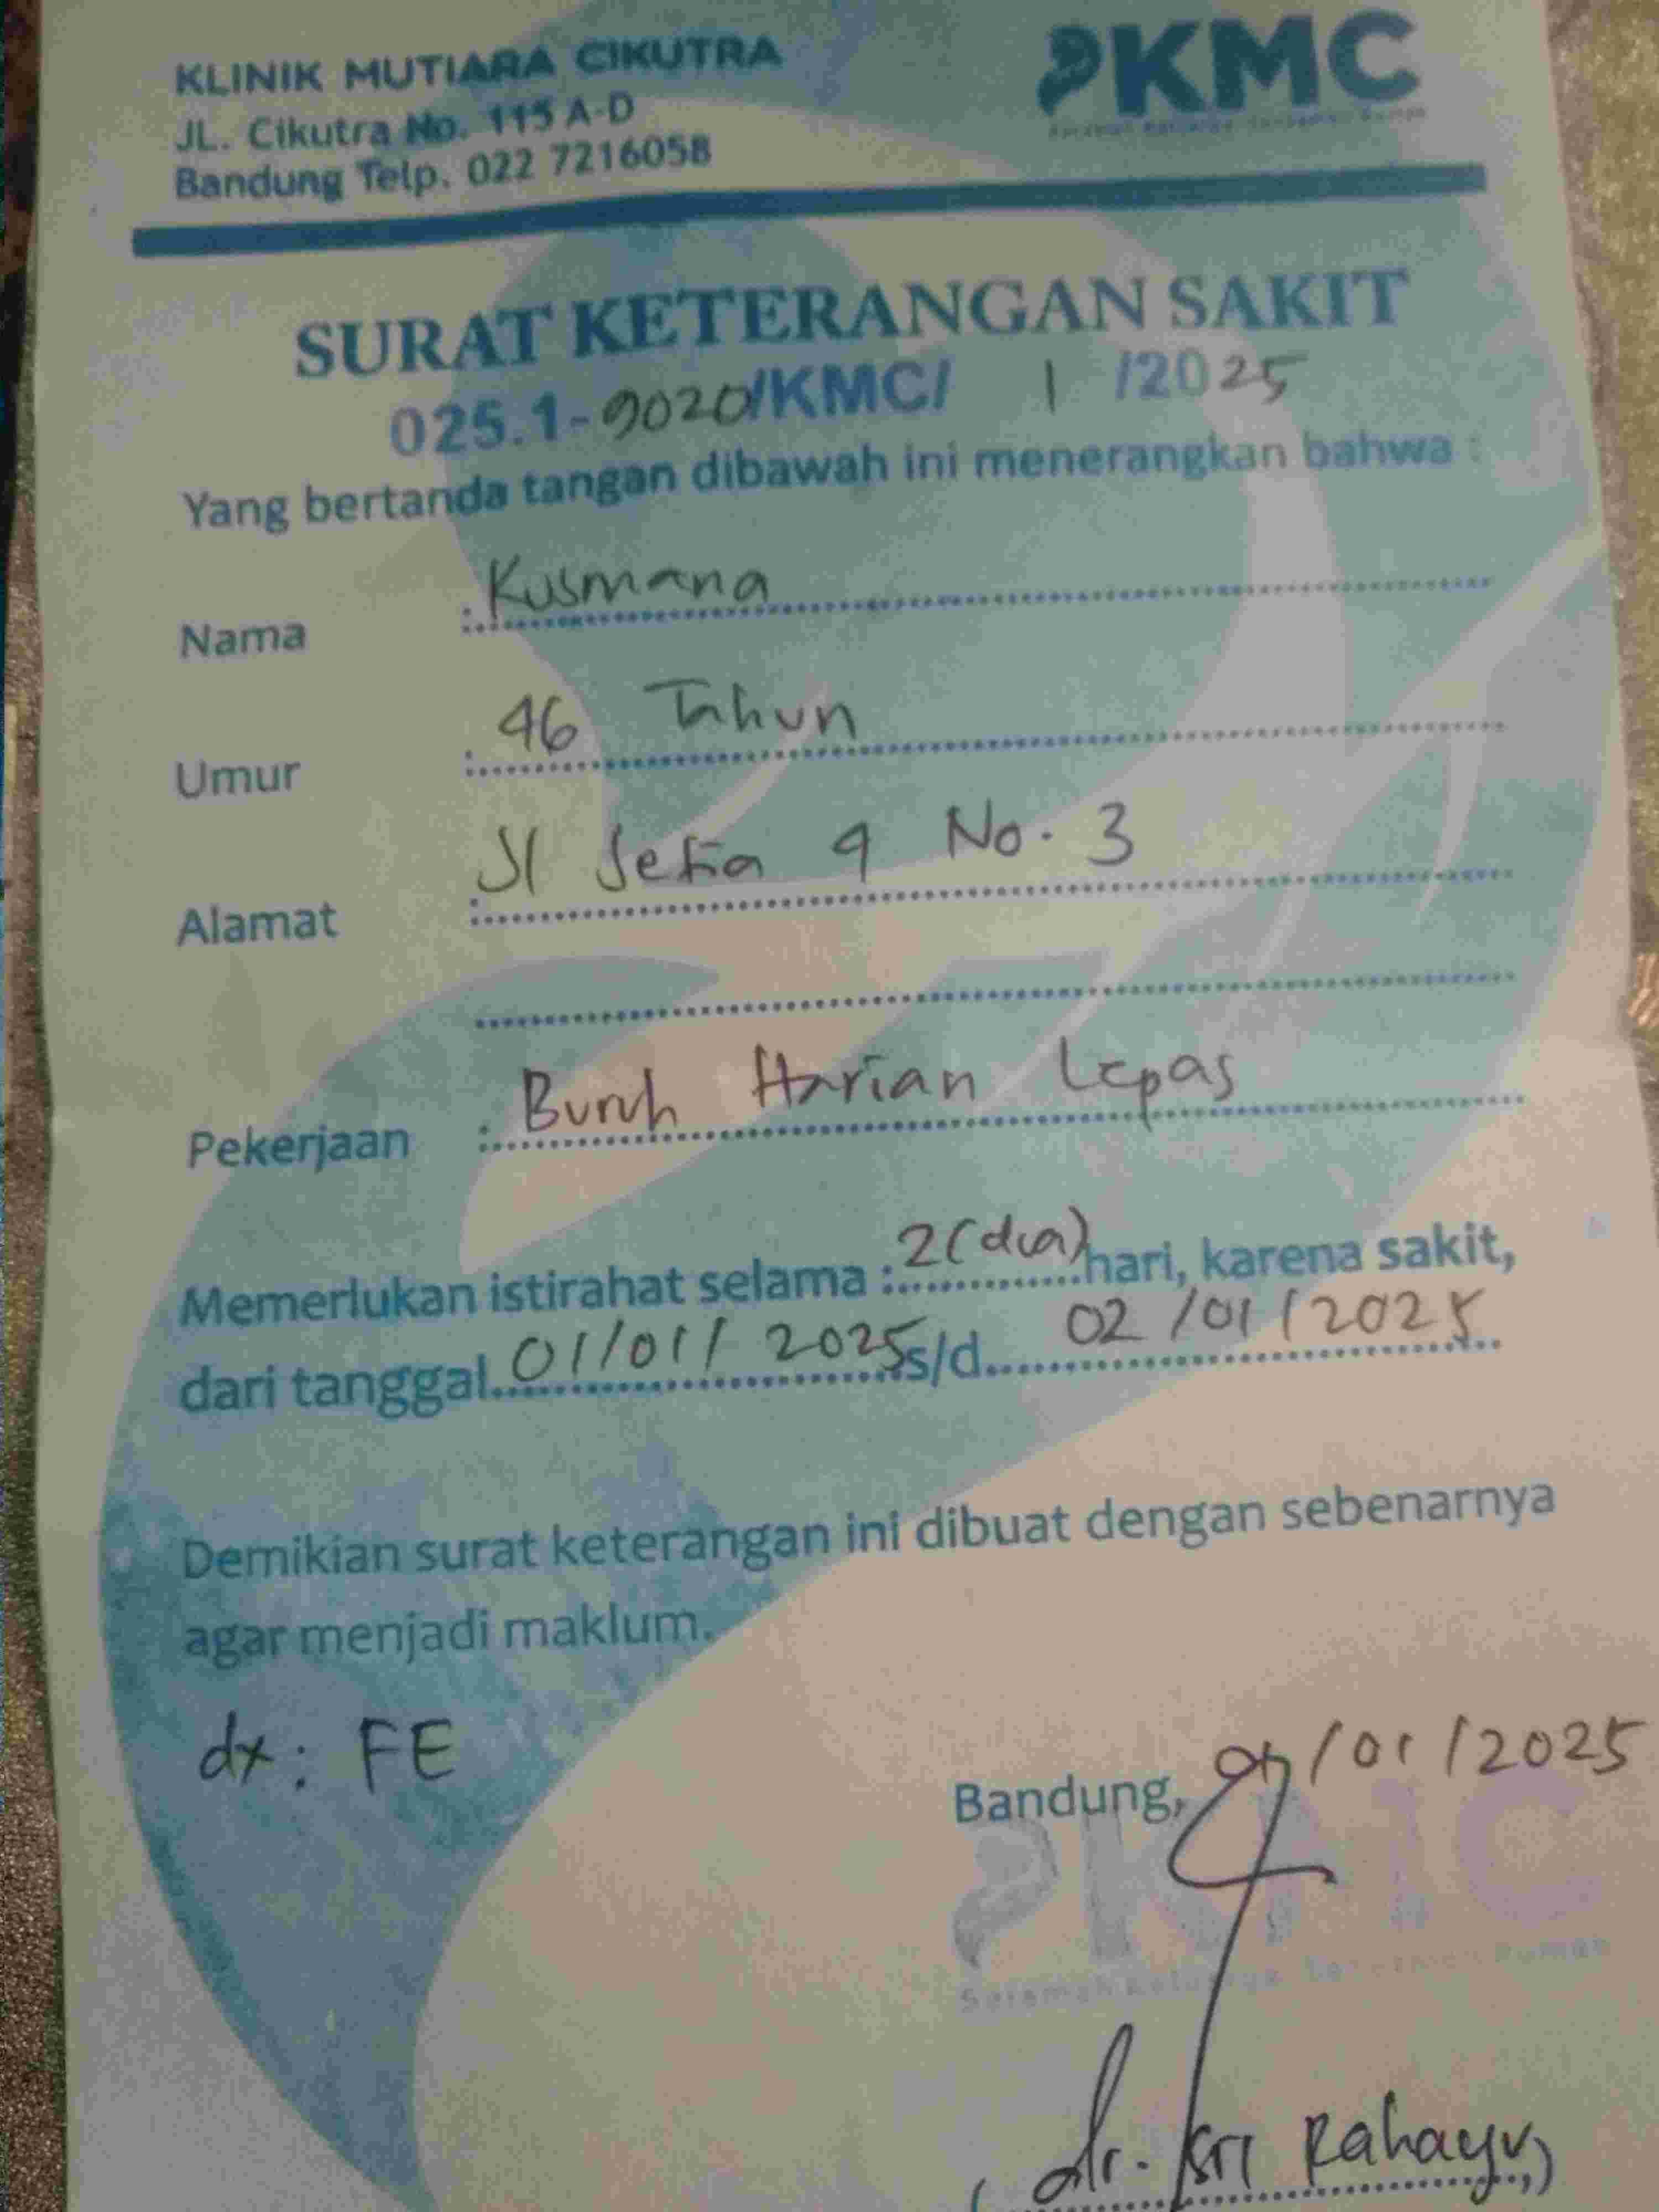 KLINIK MUTIARA CIKUTRA
JL. Cikutra No. 115 A-D
Bandung Telp. 022 7216058
KMC
SURAT KETERANGAN SAKIT
025.1-9020/KMC/ 1 /2025
Yang bertanda tangan dibawah ini menerangkan bahwa :
Nama : Kusmana
Umur : 46 Tahun
Alamat : Jl Setia 9 No. 3
Pekerjaan : Buruh Harian Lepas
Memerlukan istirahat selama : 2 (dua) hari, karena sakit,
dari tanggal 01/01/2025 s/d 02/01/2025
Demikian surat keterangan ini dibuat dengan sebenarnya
agar menjadi maklum.
dx: FE
Bandung, /01/2025
KMC
(dr. Sri Rahayu)